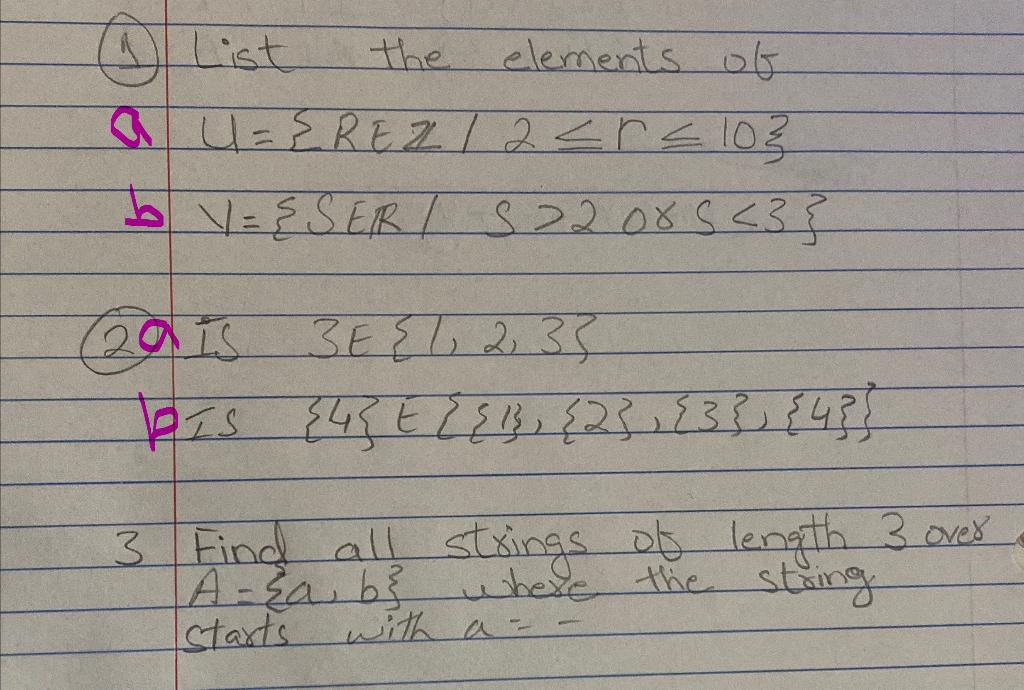 ① List the elements of
a U = {R ∈ Z | 2 ≤ r ≤ 10}
b V = {S ∈ R | S > 2 or S < 3}
② a Is 3 ∈ {1, 2, 3}
b Is {4} ∈ {{1}, {2}, {3}, {4}}
3 Find all strings of length 3 over
A = {a, b} where the string
starts with a - -